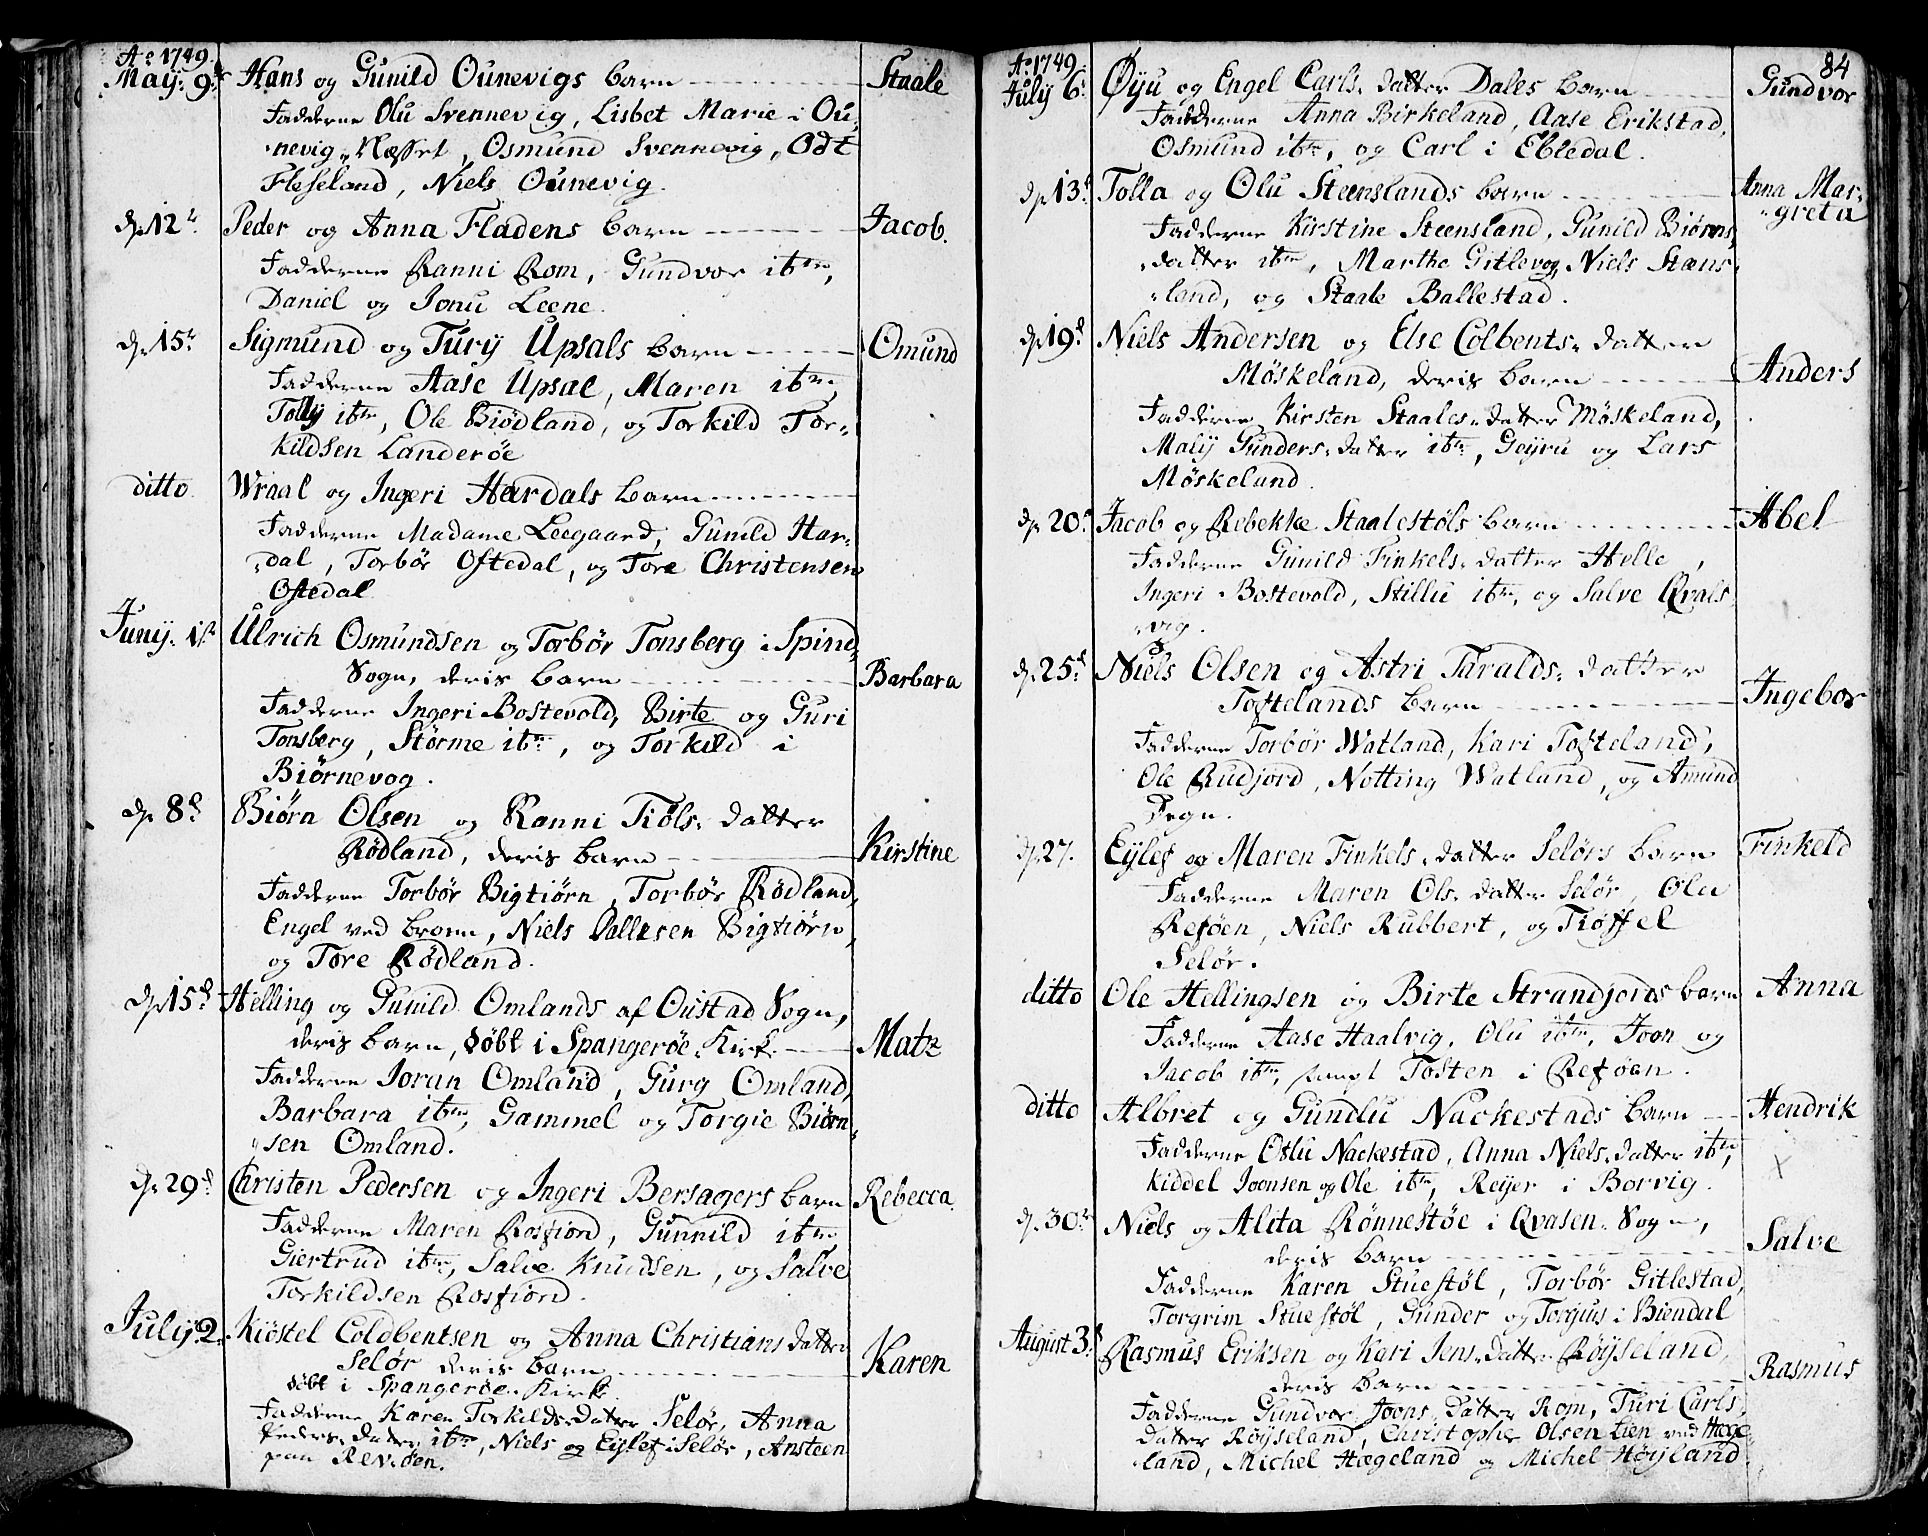 Ao 1749.
May: 9de Hans og Gunild Ounevigs barn Staale
Fadderne Olu Svennevig, Lisbet Marie i Ou-
nevig-Næsset, Osmund Svennevig, Odt
Fleseland, Niels Ounevig.
dp 12te Peder og Anna Fladens barn Jacob.
Fadderne Ranni Rom, Gundvor ibm,
Daniel og Jonu Leene.
dp 15te Sigmund og Tury Upsals barn Omund
Fadderne Aase Upsal, Maren ibm,
Tolly ibm, Ole Biødland, og Torkild Tor-
kildsen Landerøe
ditto Wraal og Ingeri Hardals barn
Fadderne Madame Leegaard, Gunild Har-
dal, Torbør Oftedal, og Tore Christensen
Oftedal
Juny: 1ste Ulrich Osmundsen og Torbør Tonsberg i Spind-
Sogn, deris barn Barbara
Fadderne Ingeri Bostevold, Birte og Guri
Tonsberg, Størme ibm, og Torkild i
Biørnevog.
dp 8de Biørn Olsen og Ranni Tiøls-datter
Rødland, deris barn Kirstine
Fadderne Torbør Bigtiørn, Torbør Rødland,
Engel ved broen, Niels Pallesen Bigtiørn,
og Tore Rødland.
dp 15de Helling og Gunild Omlands af Oustad Sogn,
deris barn, døbt i Spangerøe-Kirk. Matz
Fadderne Joran Omland, Gurg Omland,
Barbara ibm, Gammel og Torgie Biørn-
sen Omland.
dp 29de Christen Pedersen og Ingeri Bersagers barn Rebecca.
Fadderne Maren Rosfiord, Gunnild ibm
Giertrud ibm, Salve Knudsen, og Salve
Torkildsen Rosfiord.
July: 2. Kiøstel Coldbentsen og Anna Christians datter
Selør deris barn Karen
døbt i Spangerøe-Kirk.
Fadderne Karen Torkilds-datter Selør, Anna
Peders-datter ibm, Niels og Eylef i Selør, Ansteen
paa Revøen.
84
Ao 1749.
July 6te Øyu og Engel Carls-datter Dales barn Gundvor
Fadderne Anna Birkeland, Aase Erikstad,
Osmund ibm, og Carl i Ebledal.
dp 13de Tolla og Olu Steenslands barn Anna Mar-
greta
Fadderne Kirstine Steensland, Gunild Biørns-
datter ibm, Marthe Gitlevog, Niels Stæns-
land, og Staale Ballestad.
dp 19de Niels Andersen og Else Colbents-datter
Møskeland, deris barn Anders
Fadderne Kirsten Staales-datter Møskeland,
Maly Gunders-datter ibm, Geyru og Lars
Møskeland.
dp 20de Jacob og Rebekke Staalestøls barn Abel
Fadderne Gunild Finkels-datter Helle,
Ingeri Bostevold, Stillu ibm, og Salve Qvals-
vig.
dp 25de Niels Olsen og Astri Taralds-datter
Toftelands barn Ingebor
Fadderne Torbør Watland, Kari Tofteland,
Ole Rudjord, Notting Watland, og Amund
Degn.
dp 27. Eylef og Maren Finkels-datter Selørs barn Finkeld
Fadderne Maren Ols-datter Selør, Olu
Reføen, Niels Rubbert, og Tiøffel
Selør.
ditto Ole Hellingsen og Birte Strandjords barn Anna
Fadderne Aase Haalvig, Olu ibm, Joon og
Jacob ibm, samt Tosten i Reføen.
ditto Albret og Gundlu Nackestads barn Hendrik
Fadderne Oslu Nackestad, Anna Niels-datter ibm,
Kiddel Joonsen og Ole ibm, Reyer i Borvig.
dp 30te Niels og Alita Rønnestøe i Qvasen-Sogn,
deris barn Salve
Fadderne Karen Stuestøl, Torbør Gitlestad,
Torgrim Stuestøl, Gunder og Torjus i Biendal
August 3de Rasmus Eriksen og Kari Jens-datter Røyseland,
deris barn Rasmus
Fadderne Gundvor Joons-datter Rom, Turi Carls-
datter Røyseland, Christopher Olsen tien ved Hæge-
land, Michel Hægeland og Michel Høyland